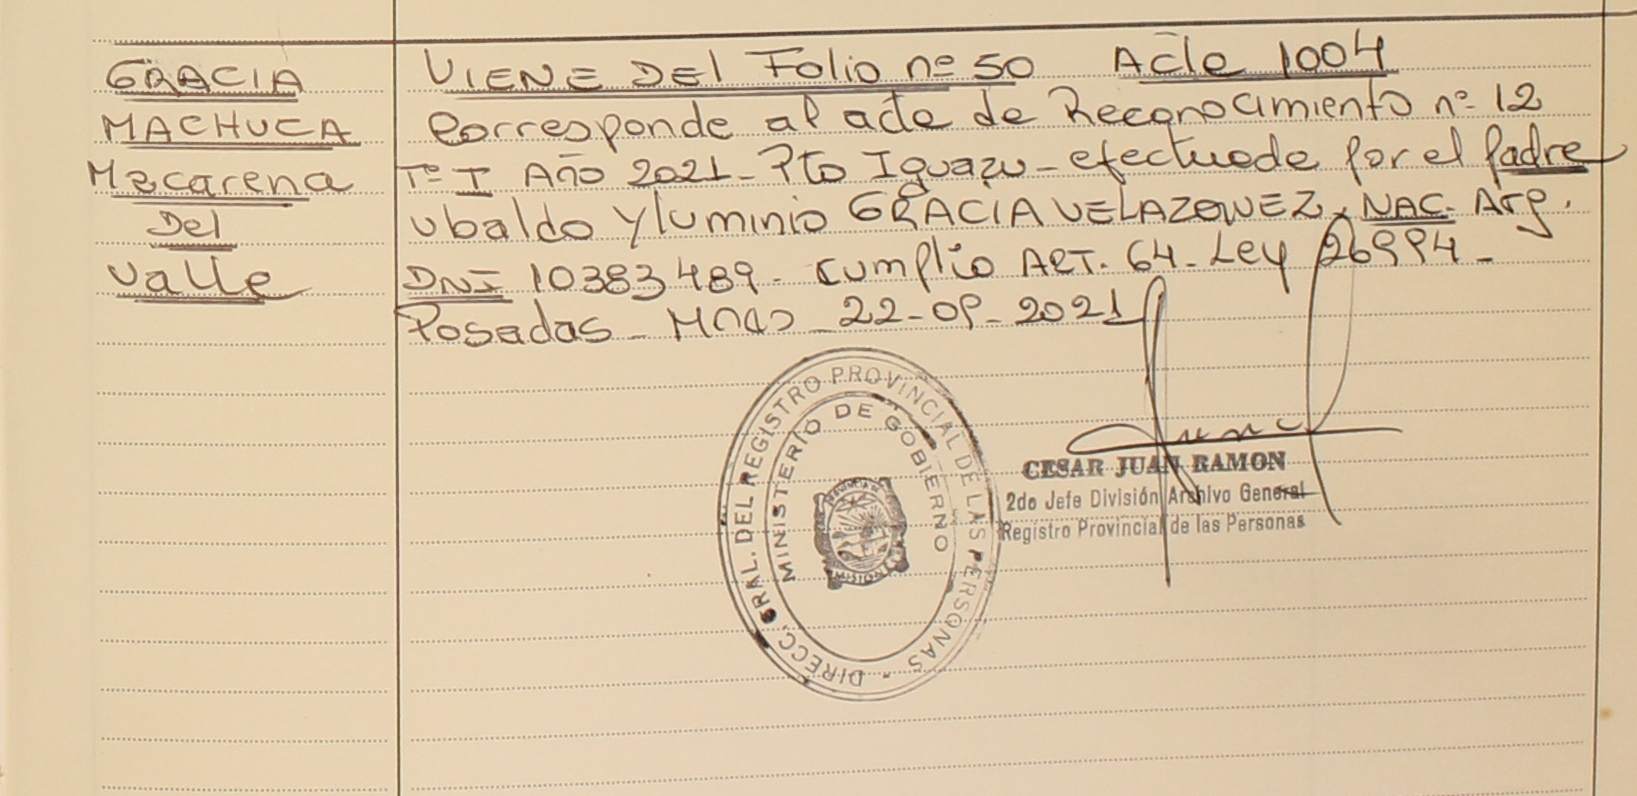 GRACIA
MACHUCA
Macarena
Del
Valle
VIENE DEL Folio nº 50 Acte 1004
Corresponde al acta de Reconocimiento nº 12
Tº I Año 2021 - Pto Iguazu - efectuado por el padre
Ubaldo Yluminio GRACIA VELAZQUEZ, NAC. Arg.
DNI 10383489 - Cumplio ART. 64 - Ley 26994 -
Posadas - Mnes - 22-09-2021
DIRECC. GRAL. DEL REGISTRO PROVINCIAL DE LAS PERSONAS
MINISTERIO DE GOBIERNO
PROVINCIA DE
MISIONES
CESAR JUAN RAMON
2do Jefe División Archivo General
Registro Provincial de las Personas